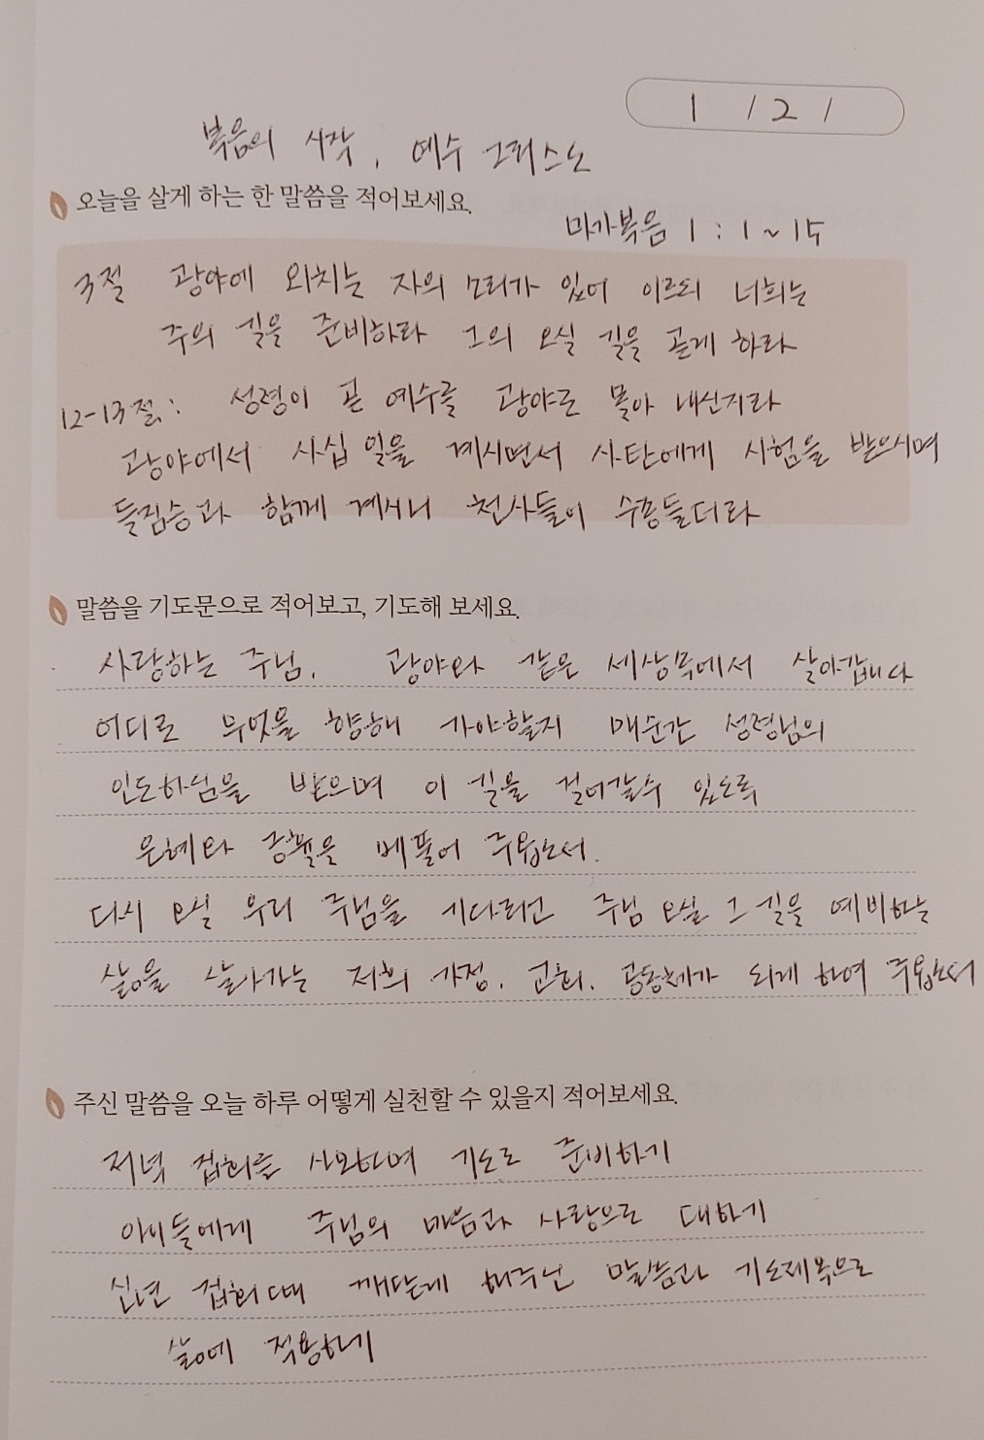 1 / 2 /
복음의 시작, 예수 그리스도
오늘을 살게 하는 한 말씀을 적어보세요.
마가복음 1 : 1 ~ 15
3절 광야에 외치는 자의 소리가 있어 이르되 너희는
주의 길을 준비하라 그의 오실 길을 곧게 하라
12-13절: 성령이 곧 예수를 광야로 몰아 내신지라
광야에서 사십 일을 계시면서 사탄에게 시험을 받으시며
들짐승과 함께 계시니 천사들이 수종들더라
말씀을 기도문으로 적어보고, 기도해 보세요.
사랑하는 주님. 광야와 같은 세상속에서 살아갑니다
어디로 무엇을 향해 가야할지 매순간 성령님의
인도하심을 받으며 이 길을 걸어갈수 있도록
은혜와 긍휼을 베풀어 주옵소서.
다시 오실 우리 주님을 기다리며 주님 오실 그 길을 예비하는
삶을 살아가는 저희 가정. 교회. 공동체가 되게 하여 주옵소서
주신 말씀을 오늘 하루 어떻게 실천할 수 있을지 적어보세요.
저녁 집회를 사모하며 기도로 준비하기
아이들에게 주님의 마음과 사랑으로 대하기
신년 집회때 깨닫게 해주신 말씀과 기도제목으로
삶에 적용하기